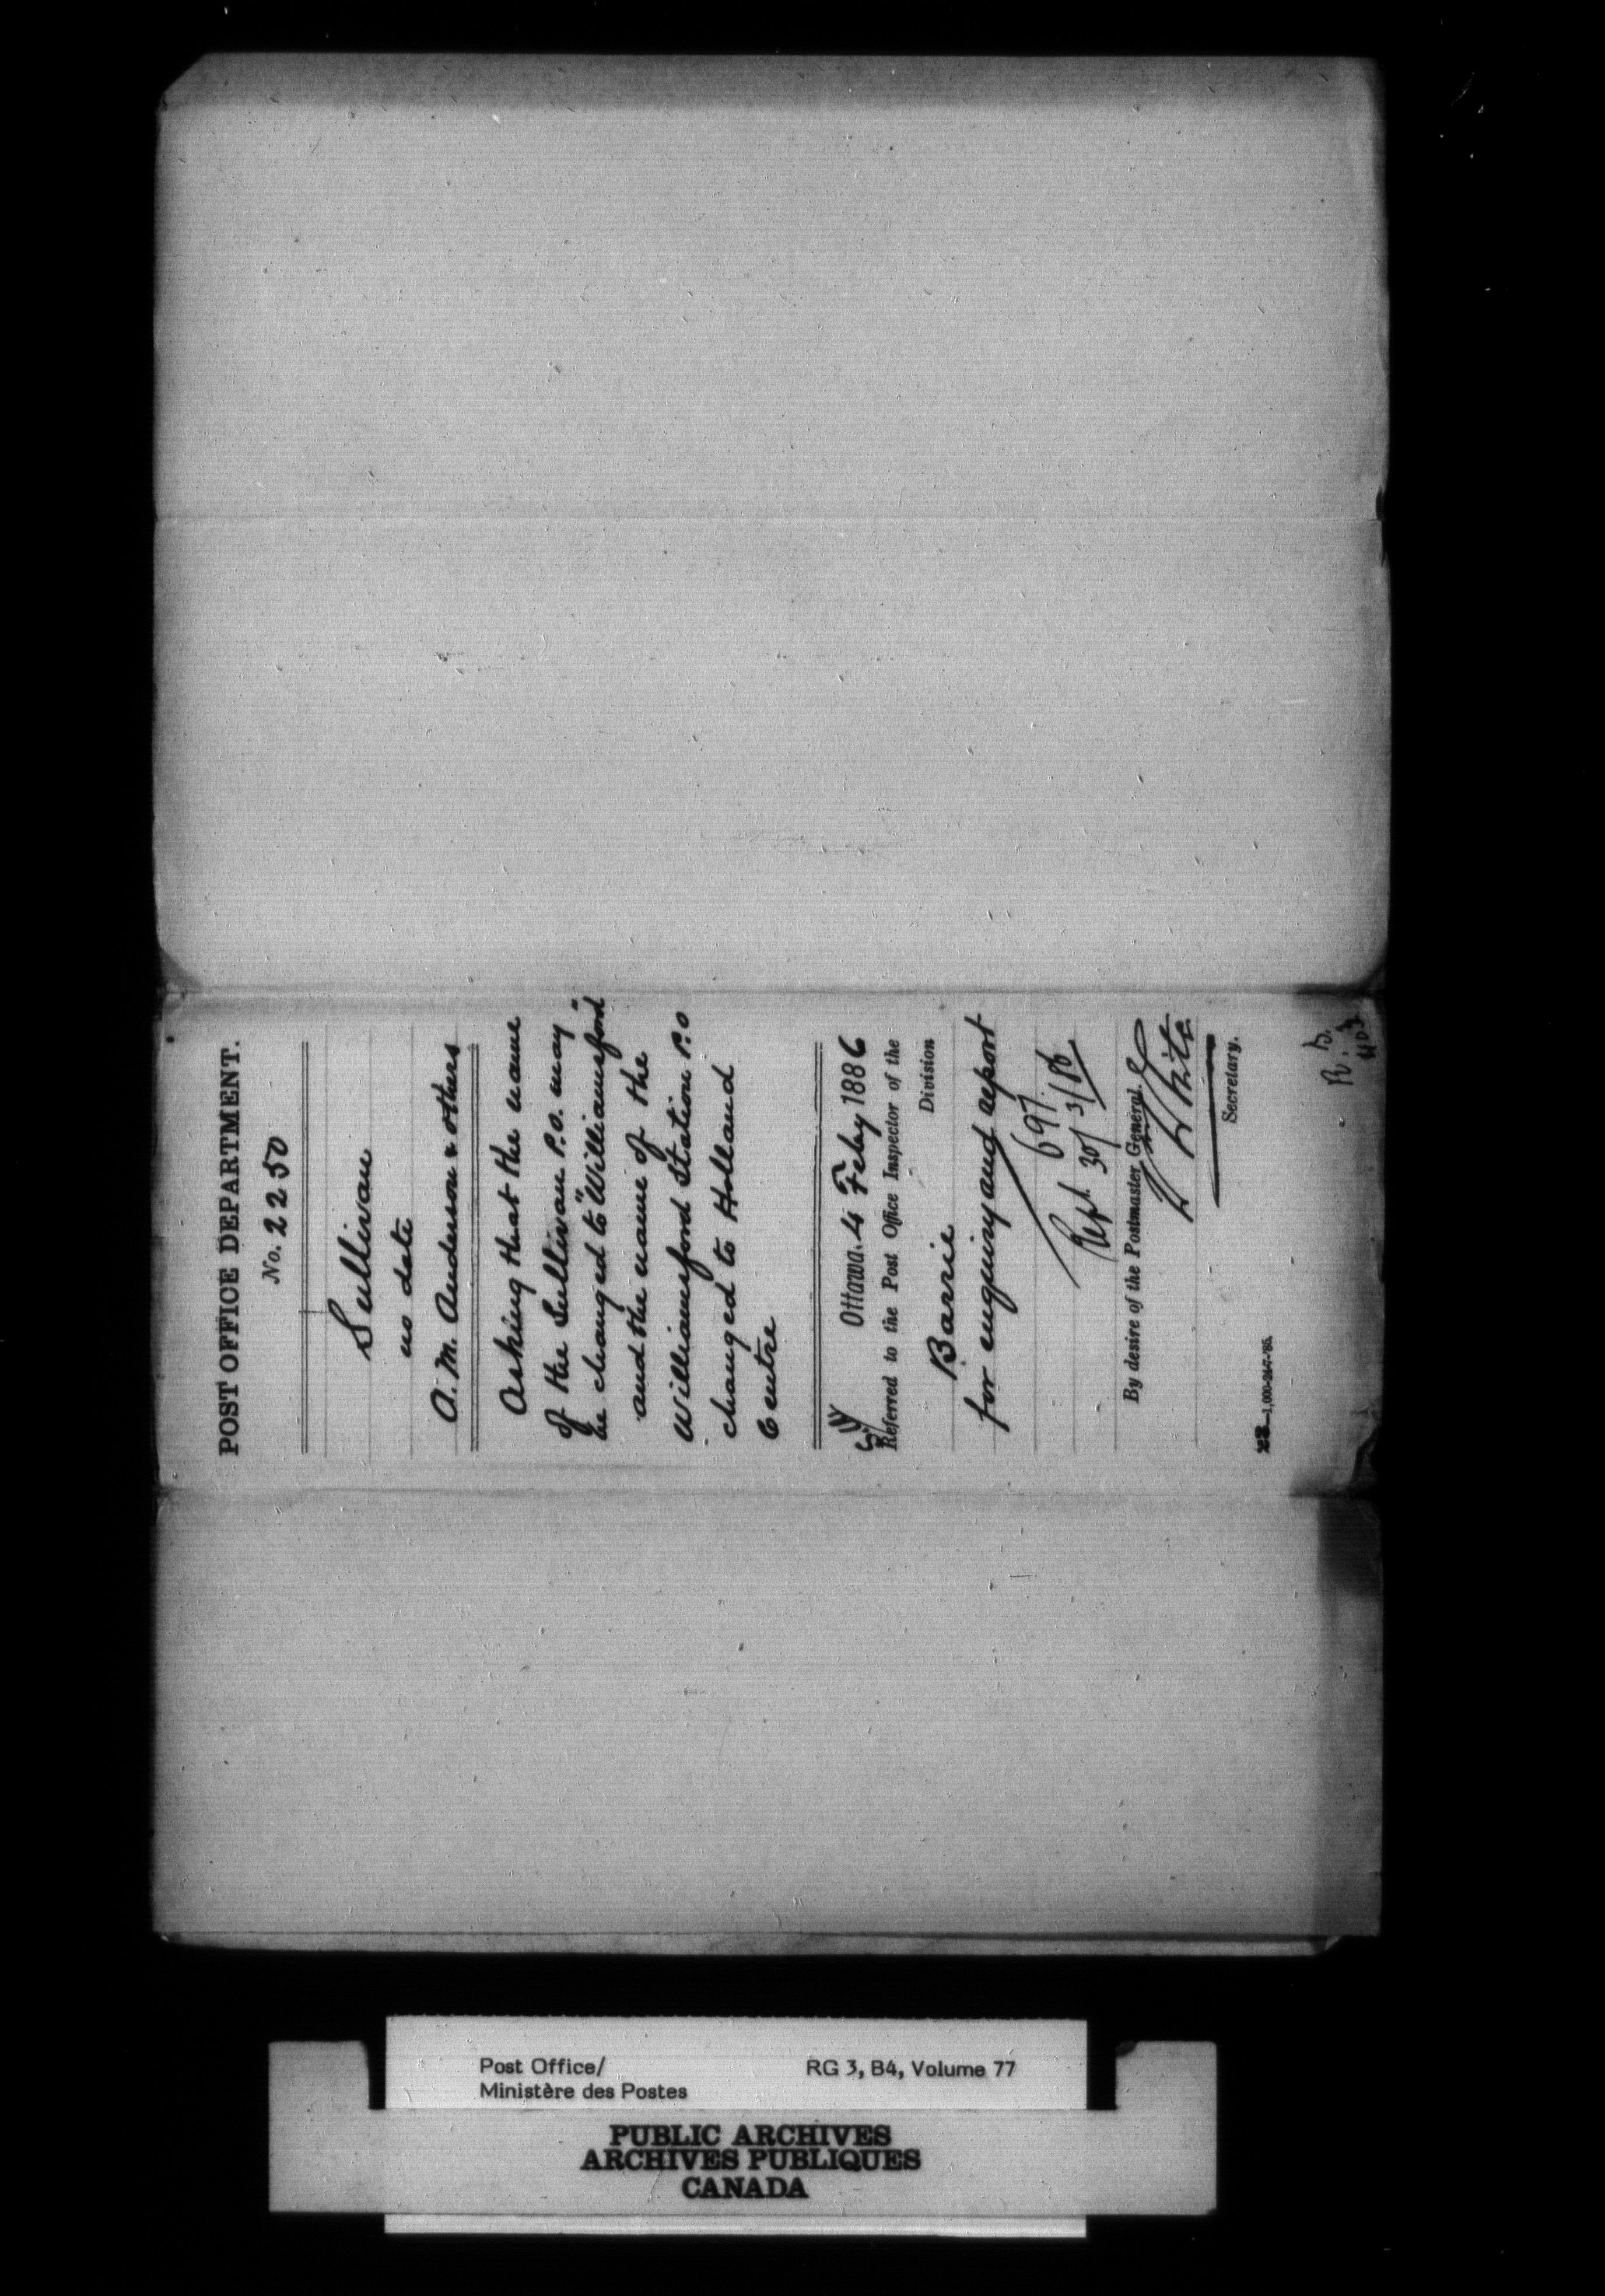 POST OFFICE DEPARTMENT.
No. 2250
Sullivan
no date
A. M. Anderson & others
Asking that the name
of the Sullivan P.O. may
be changed to "Williamsford"
and the name of the
Williamsford Station P.O
changed to Holland
Centre
Ottawa. 4 Feby 1886
Referred to the Post Office Inspector of the
Barrie Division
for enquiry and report
697
Rept. 30/3/86
By desire of the Postmaster General.
W White
Secretary.
23.—1,000-24-7-'85.
Post Office/
Ministère des Postes
RG 3, B4, Volume 77
PUBLIC ARCHIVES
ARCHIVES PUBLIQUES
CANADA